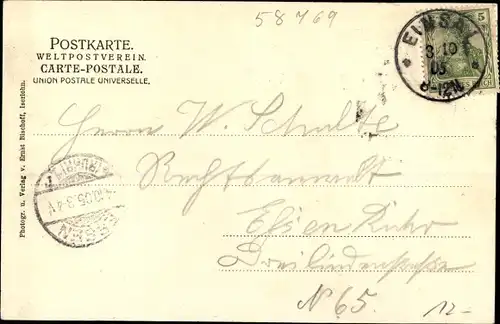 58769
POSTKARTE.
WELTPOSTVEREIN.
CARTE-POSTALE.
UNION POSTALE UNIVERSELLE.
5
3 10
05
8-12V.
Herrn W. Schulte
Rechtsanwalt
Essen Ruhr
Dreilindenstrasse
No 65.
12-
ESSEN
Photogr. u. Verlag v. Ernst Bischoff, Iserlohn.